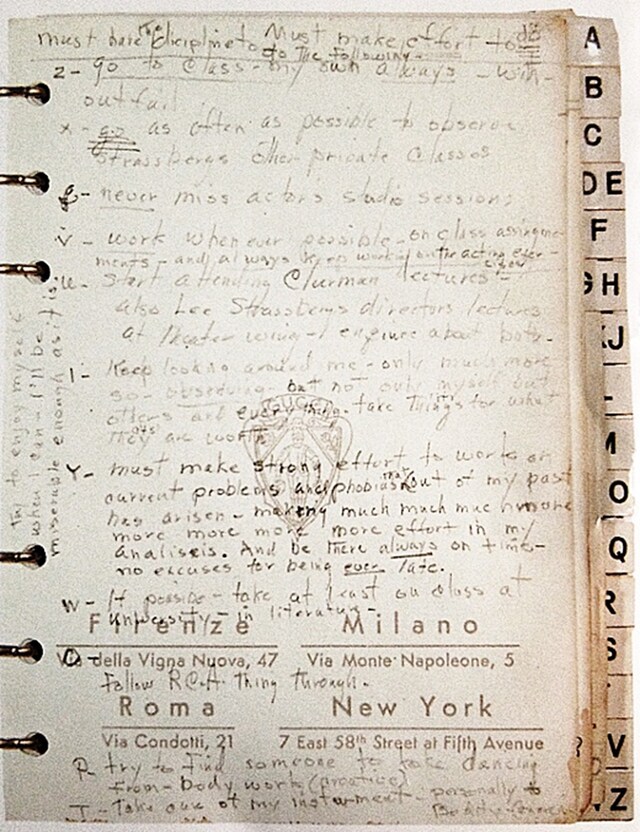 must have the discipline to do the following -
Must make effort to do
z - go to class - my own always - with-
out fail
x - go as often as possible to observe
Strassberg's other private classes
g - never miss actors studio sessions
v - work whenever possible - on class assignme-
ments - and always keep working on the acting exer-
cises
u - start attending Clurman lectures -
also Lee Strassbergs directors lectures
at theater wing - enquire about both -
l - Keep looking around me - only much more
so - observing - but not only myself but
others and everything - take things for what
they are worth
Y - must make strong effort to work on
current problems and phobias that out of my past
has arisen - making much much much more
more more more more effort in my
analisis. And be there always on time -
no excuses for being ever late.
w - If possible - take at least one class at
university - in literature -
O -
Follow RCA thing through.
P - try to find someone to take dancing
from - body work (practice)
T - take care of my instrument - personally &
try to enjoy myself
when I can - I'll be
miserable enough as it is.
GUCCI
Firenze
Milano
Via della Vigna Nuova, 47
Via Monte Napoleone, 5
Roma
New York
Via Condotti, 21
7 East 58th Street at Fifth Avenue
A
B
C
DE
F
GH
J
M
O
Q
R
S
V
Z